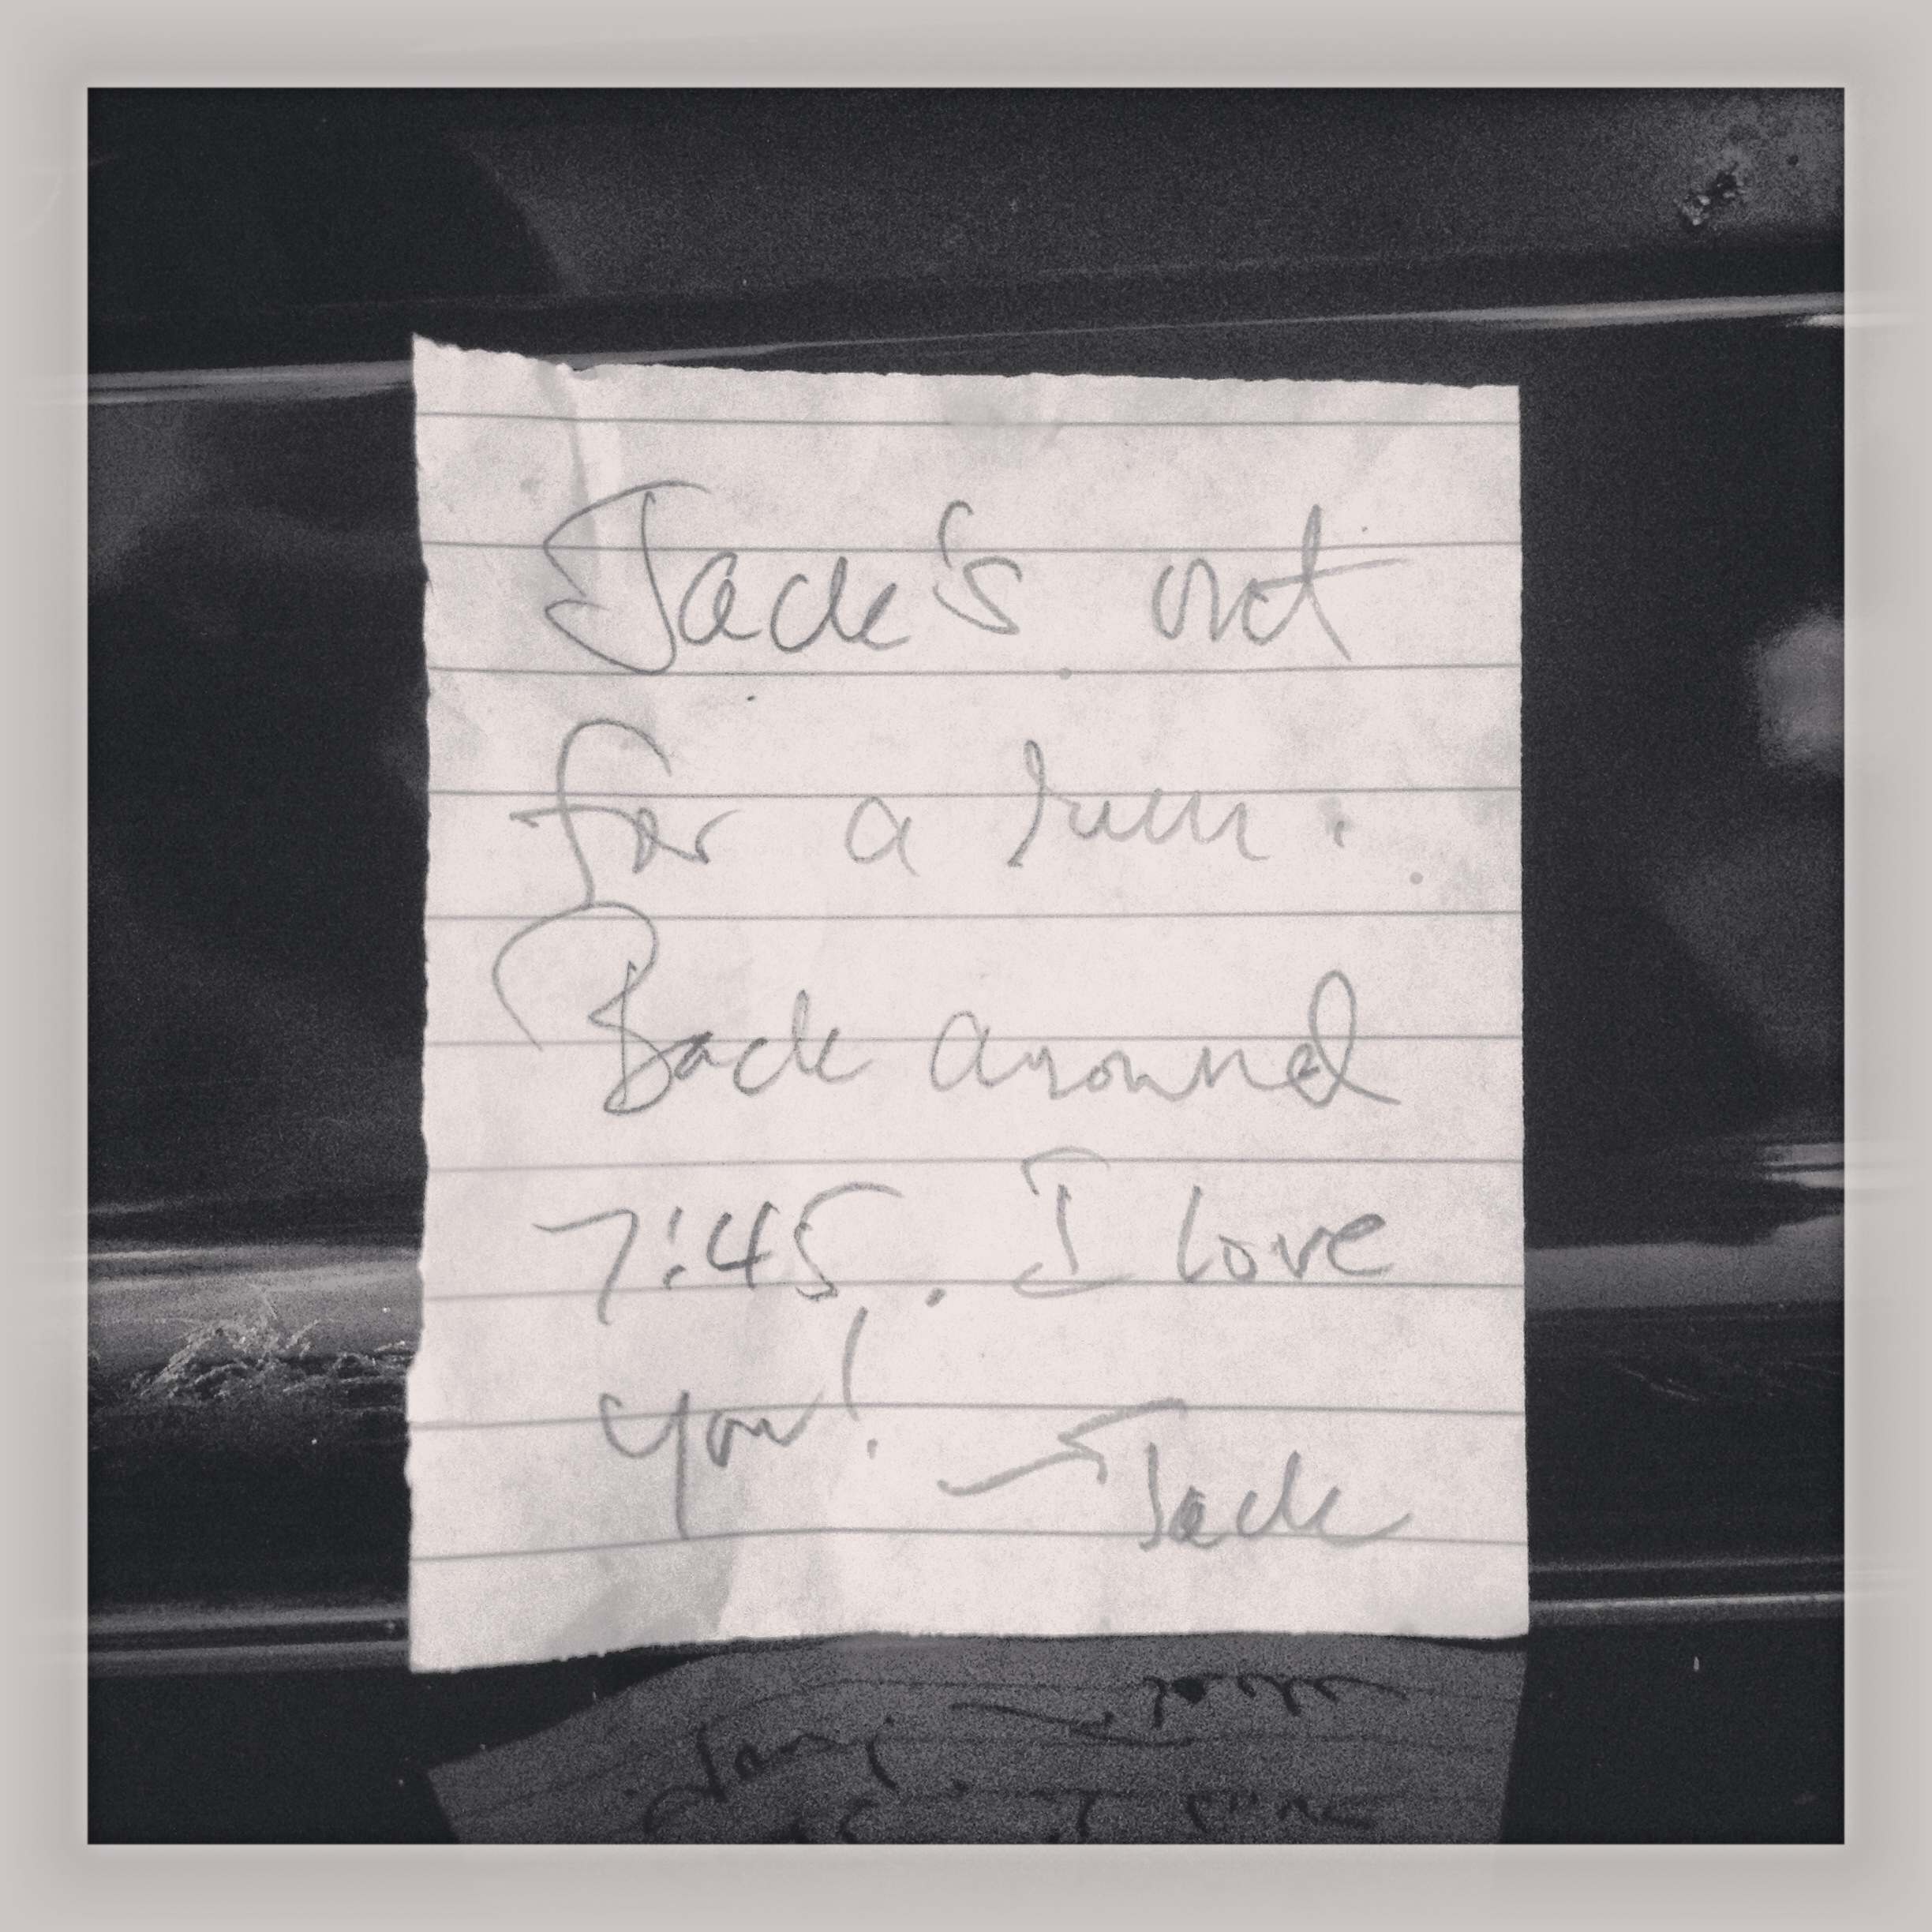 Jack's out
for a run.
Back around
7:45. I love
you!
—Jack